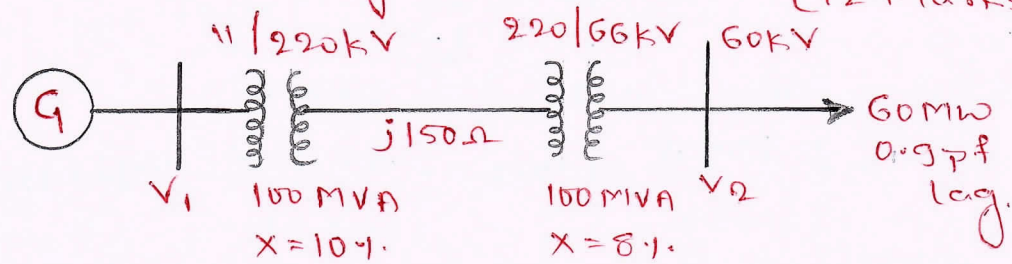 11/220kV 220/66KV 60KV
G j150Ω 60MW
0.9pf
lag.
V1 100 MVA 100MVA V2
X=10%. X=8%.